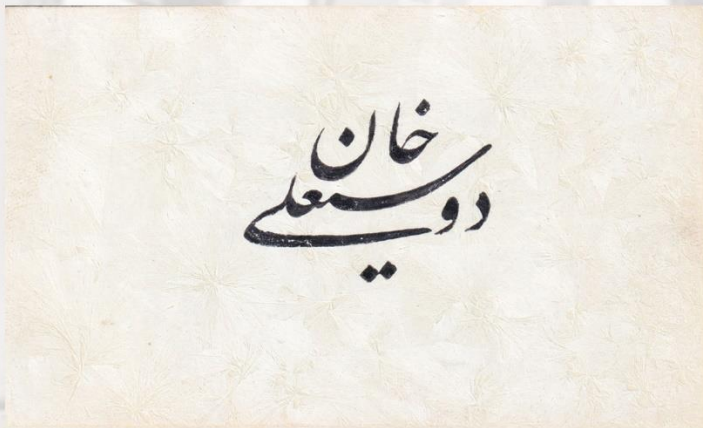 دوستعلی خان